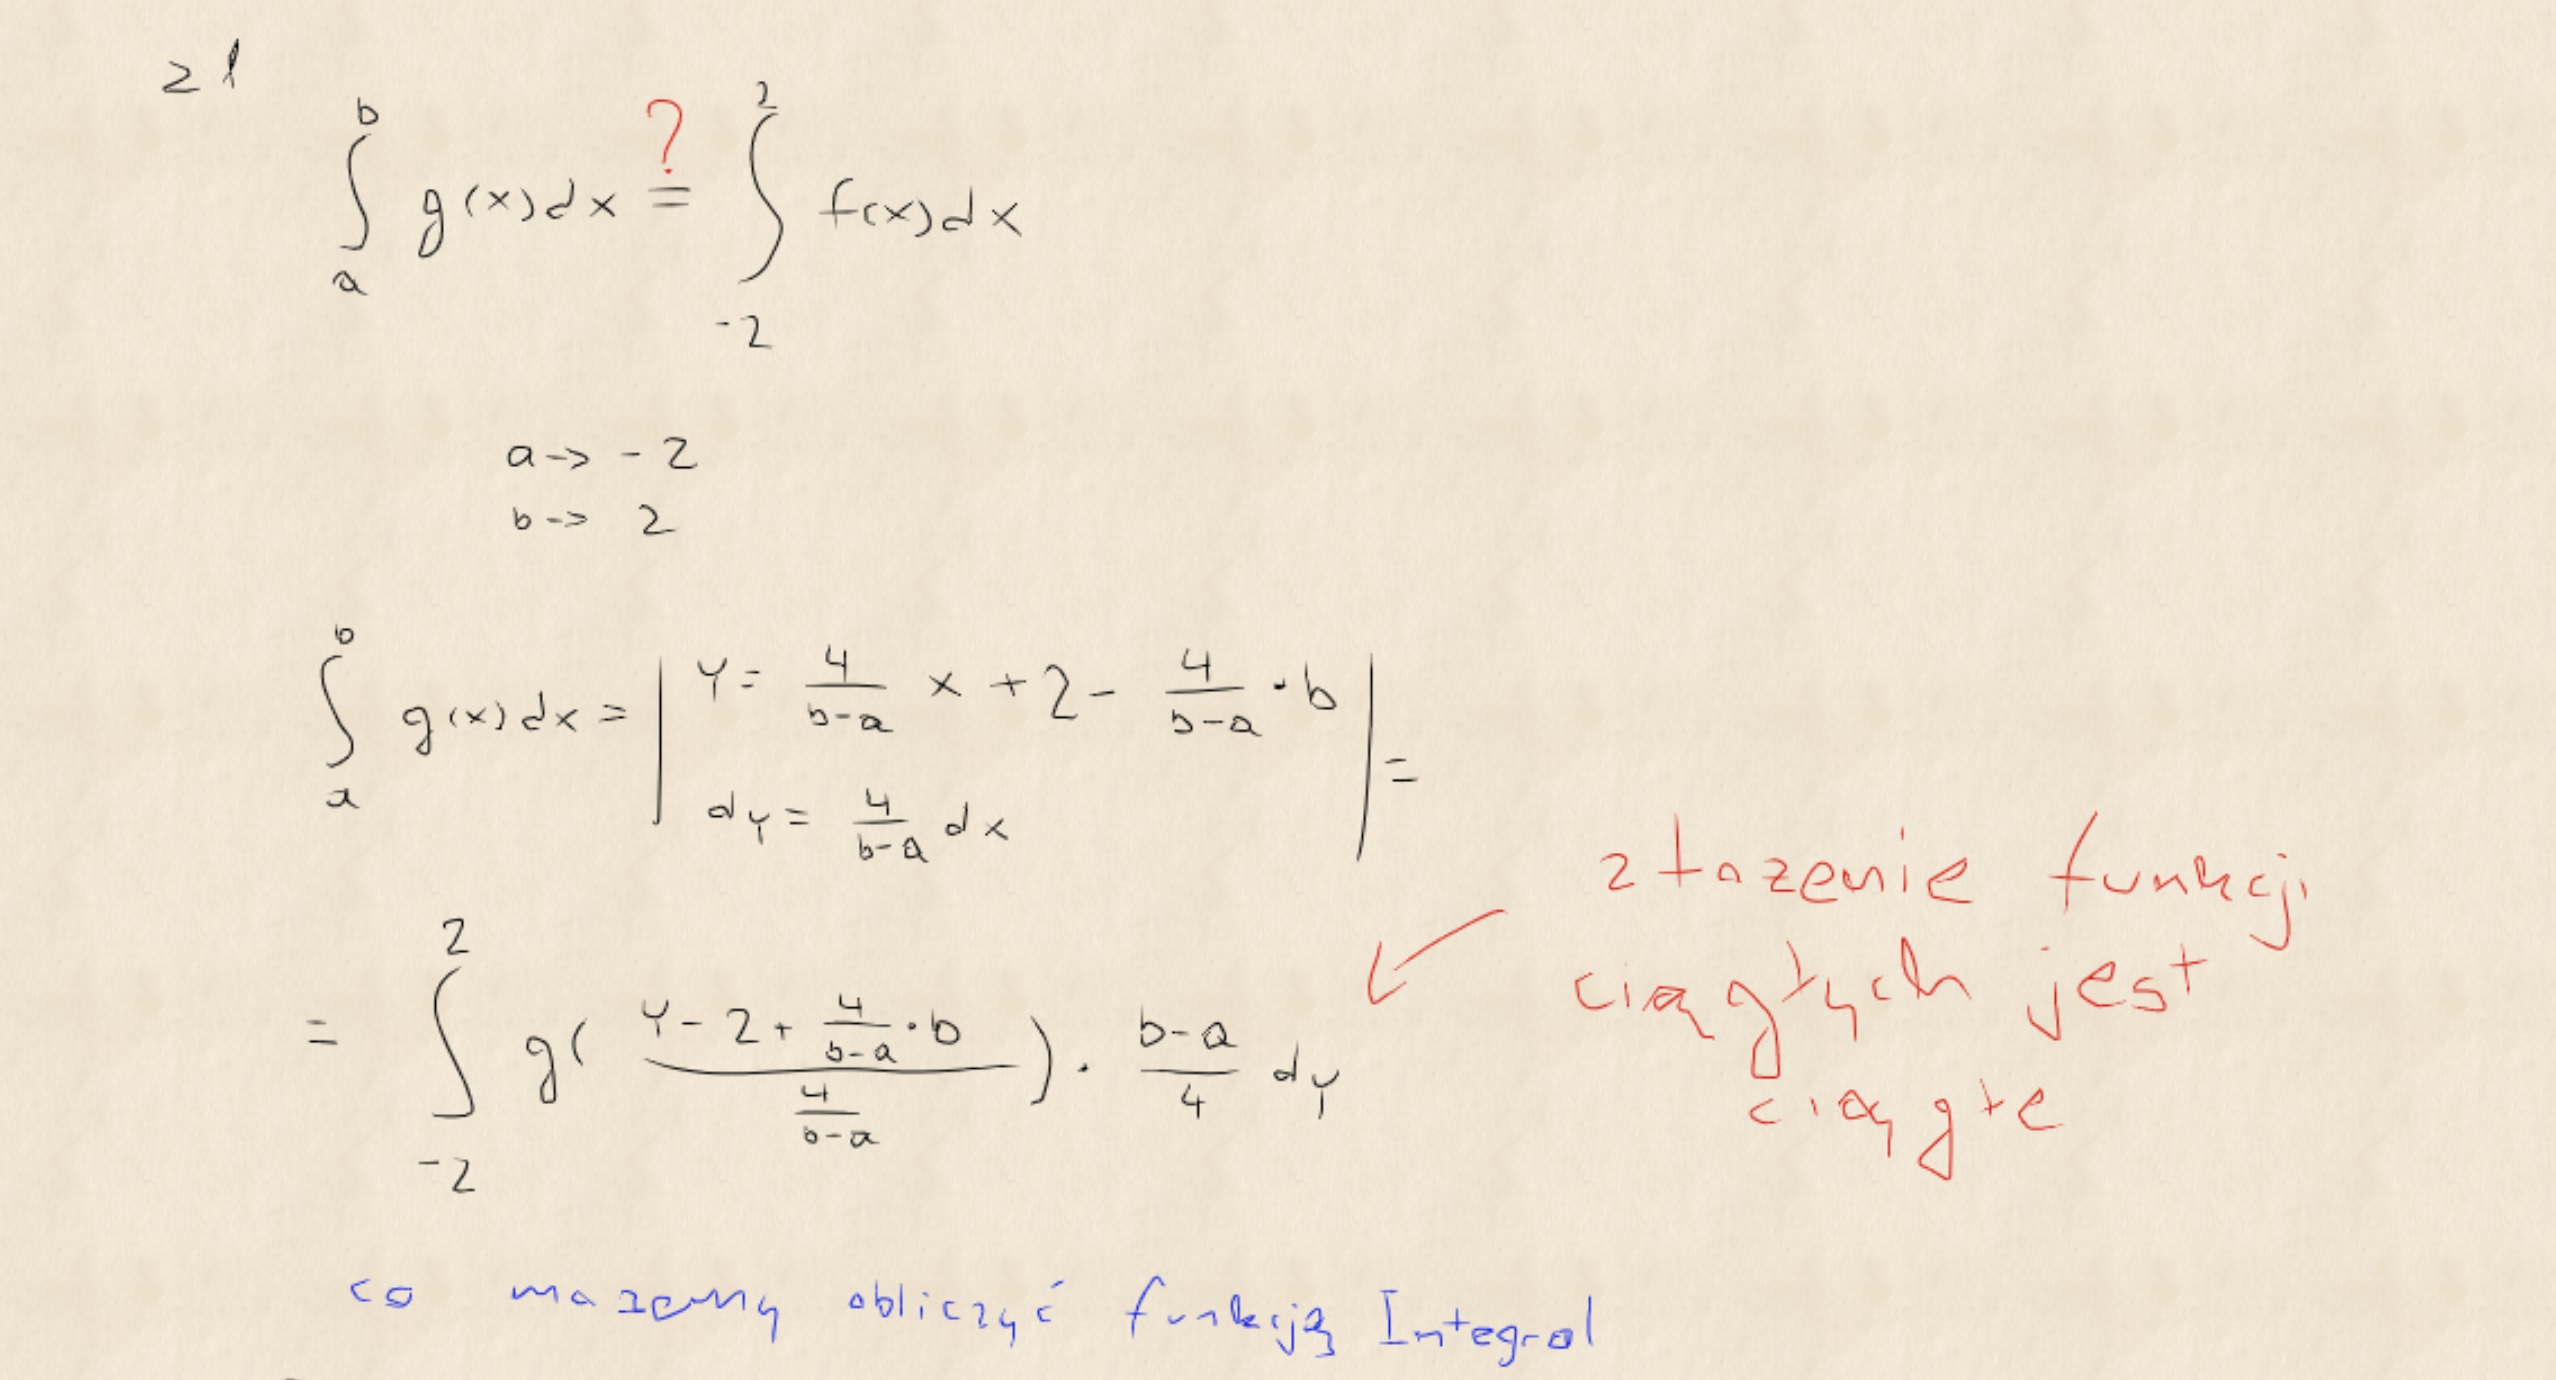 z1
∫_a^b g(x)dx =? ∫_{-2}^{2} f(x)dx
a -> -2
b -> 2
∫_a^b g(x)dx = | y = \frac{4}{b-a} x + 2 - \frac{4}{b-a} · b
dy = \frac{4}{b-a} dx | =
= ∫_{-2}^{2} g( \frac{y - 2 + \frac{4}{b-a} · b}{\frac{4}{b-a}} ) · \frac{b-a}{4} dy
złozenie funkcji
ciągłych jest
ciągłe
co mozemy obliczyć funkcją Integral